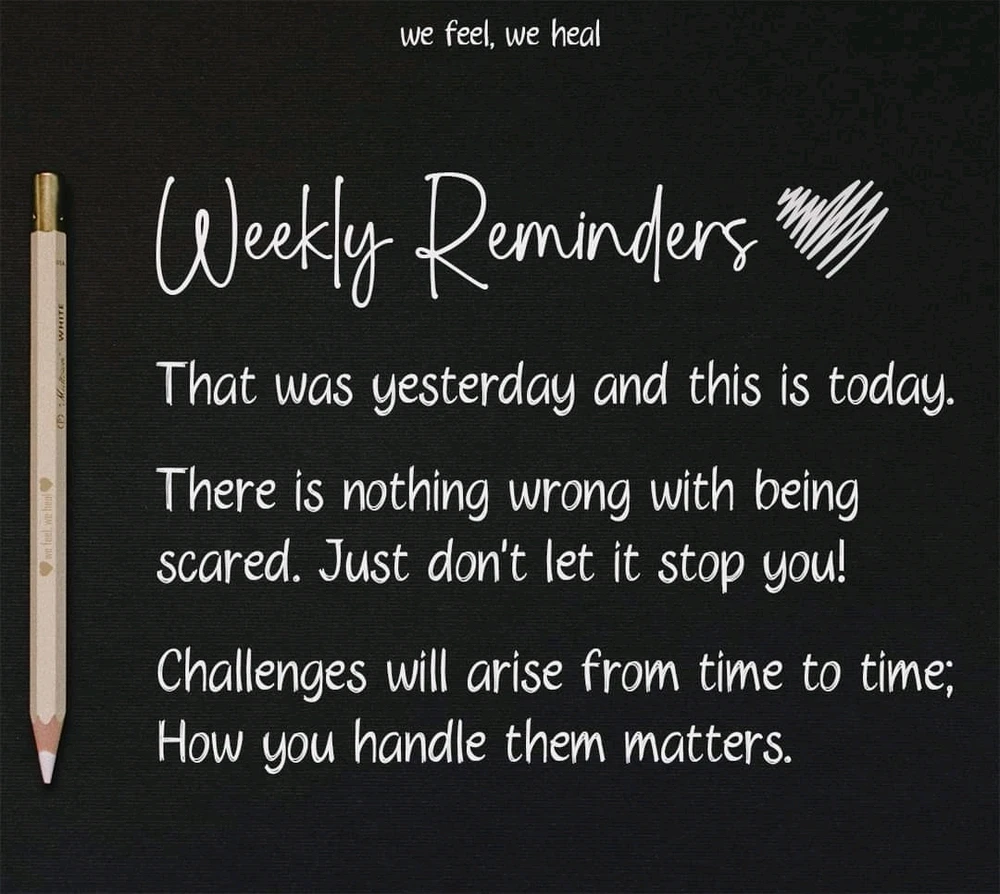 we feel, we heal
Weekly Reminders
That was yesterday and this is today.
There is nothing wrong with being
scared. Just don't let it stop you!
Challenges will arise from time to time;
How you handle them matters.
WHITE
we feel, we heal